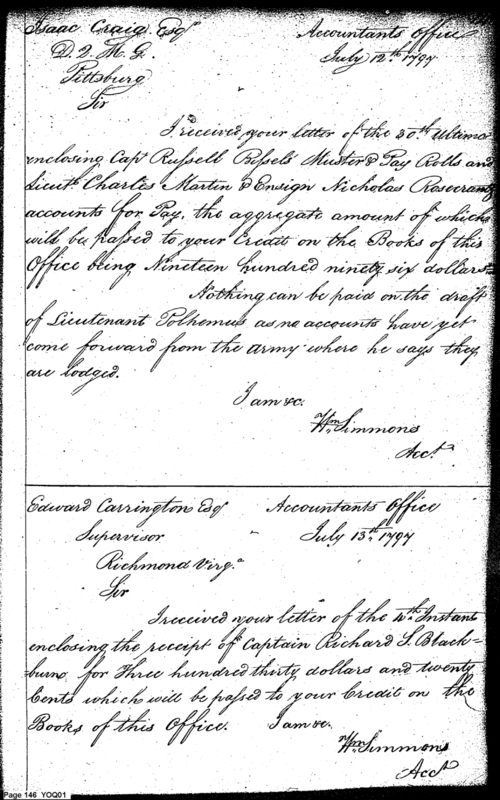 Isaac Craig Esqr Accountants Office
D. Q. M. G. July 12th 1797
Pittsburg
Sir
I received your letter of the 30th Ultimo
enclosing Capt Russell Bissels Muster & Pay Rolls and
Lieuts Charles Martin & Ensign Nicholas Rosecrantz
accounts for Pay, the aggregate amount of which
will be passed to your Credit on the Books of this
Office being Nineteen hundred ninety six dollars
Nothing can be paid on the draft
of Lieutenant Polhemus as no accounts have yet
come forward from the army where he says they
are lodged.
I am &c.
Wm Simmons
Acct.
Edward Carrington Esqr Accountants Office
Supervisor July 13th 1797
Richmond Virga
Sir
I received your letter of the Instant
enclosing the receipt of Captain Richard S. Black=
burn, for Three hundred thirty dollars and twenty
Cents which will be passed to your Credit on the
Books of this Office. I am &c.
Wm Simmons
Acct
Page 146 YOQ01